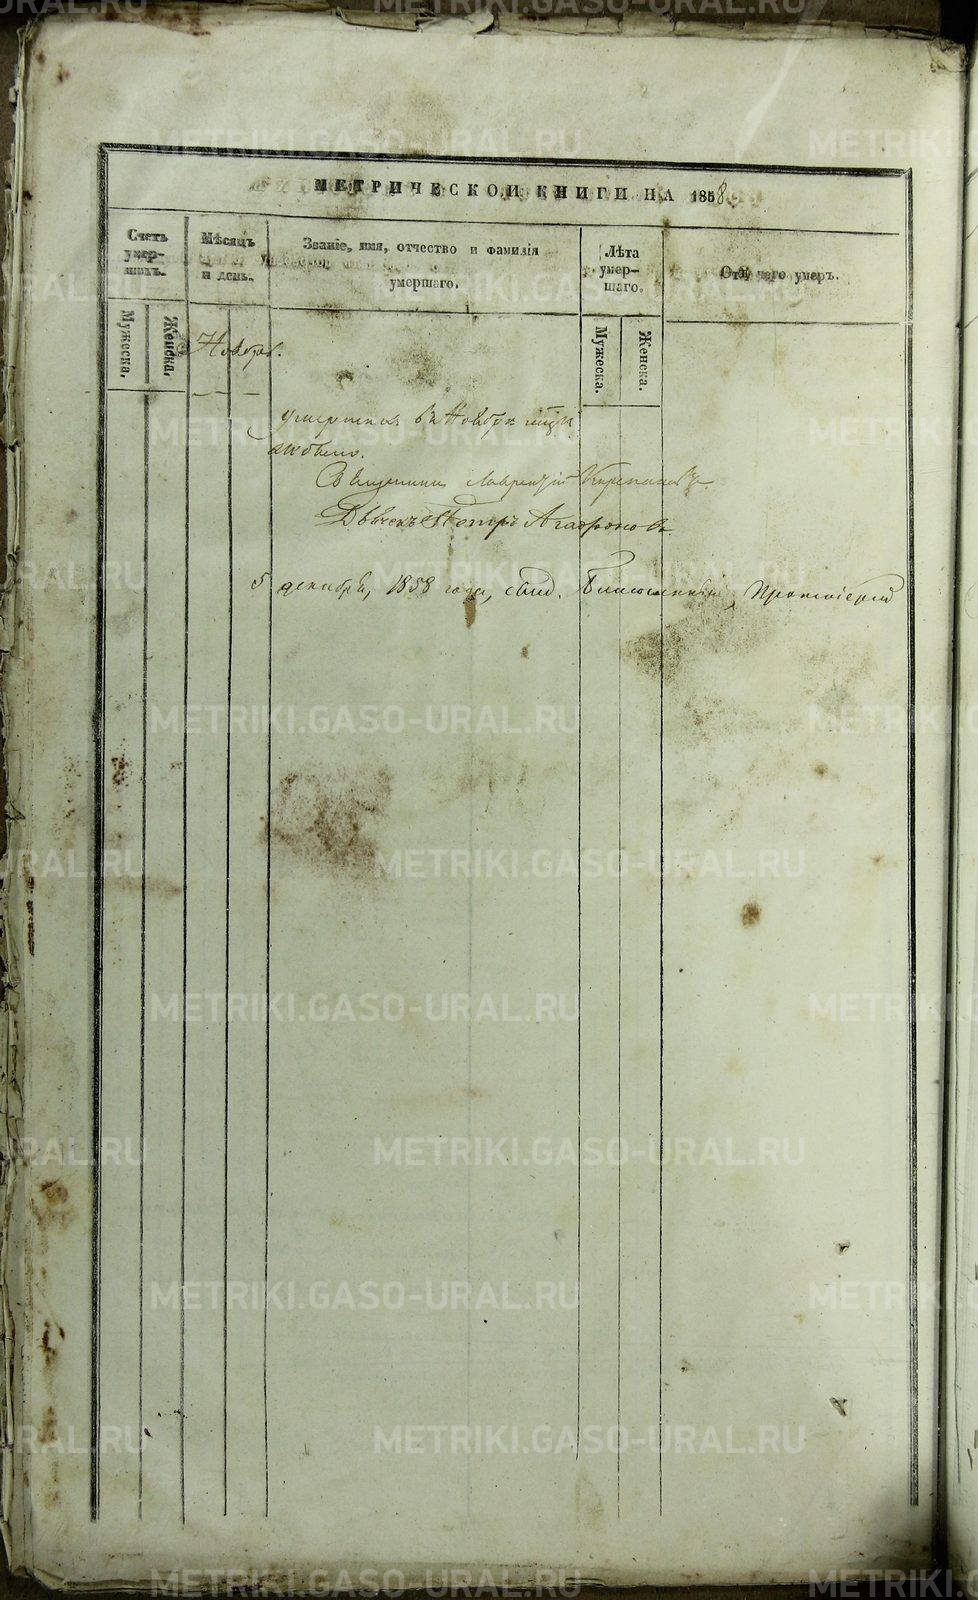 МЕТРИЧЕСКОЙ КНИГИ НА 1858
Счетъ умер-
шихъ.
Мѣсяцъ
и день.
Званіе, имя, отчество и фамилія
умершаго.
Лѣта
умер-
шаго.
Отъ чего умеръ.
Мужеска.
Женска.
Мужеска.
Женска.
Ноябрь.
Умершихъ въ Ноябрѣ
небыло.
Священникъ Лаврентій
Дьячекъ Петръ Агафоновъ.
5 декабря, 1858 года, свид. Благочинный, Протоіерей
METRIKI.GASO-URAL.RU